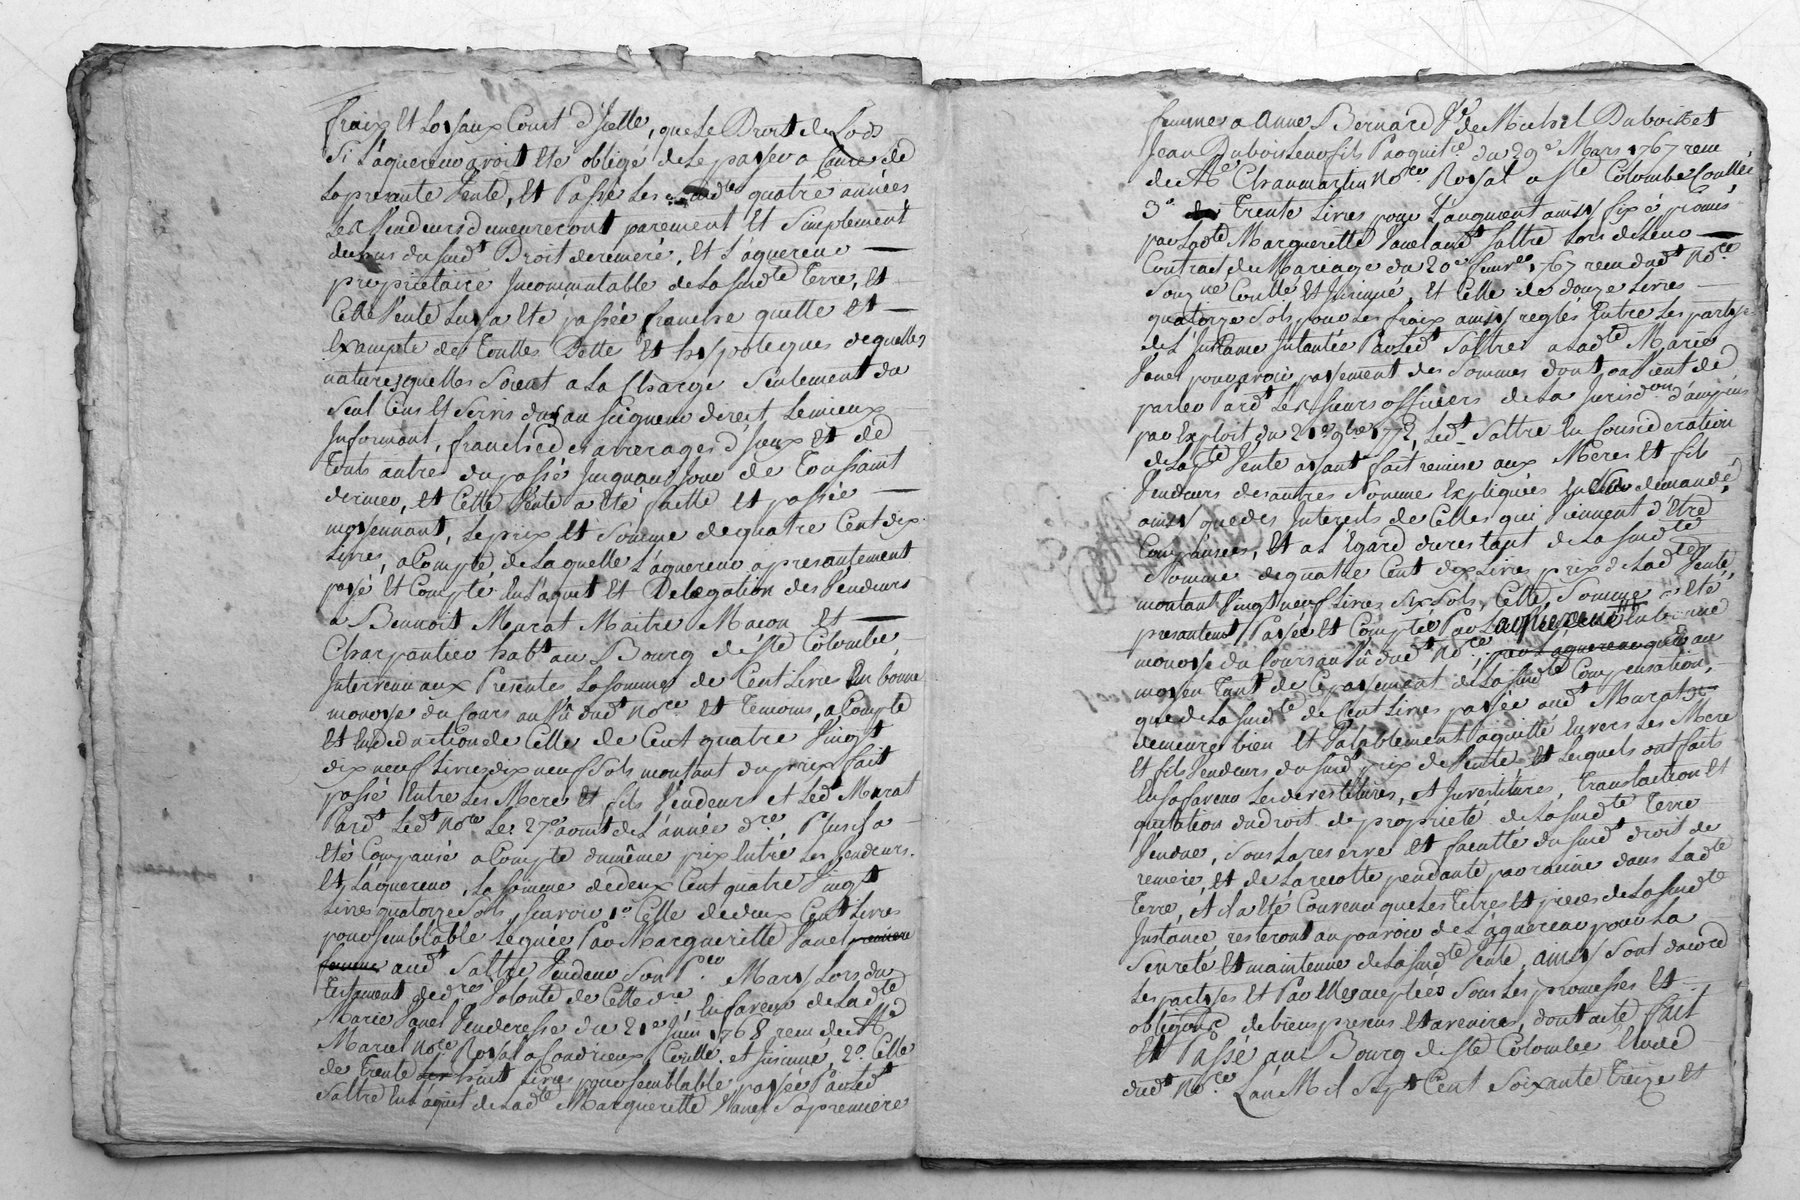 fraix Et Loyaux Cout d'Jcelle, que Le Droit de Lods
Si L'aquereur avoit Eté obligé de Le payer a Cause de
La presente Vente, Et Passé Les susd.tes quatre années
Les Vendeurs demeureront purement Et Simplement
dechus du susd.t Droit de remeré, Et L'aquereur
proprietaire Jncommutable de La susd.te Terre, Et
Cette Vente Luy a Eté passée franche quitte Et
Exampte de Touttes Dette Et hypotecques de quelles
natures quelles Soient a La Charge Seulement du
Seul Cens Et Servis du au Seigneur direct Le mieux
Jnformant, franche d'arrerages d'Jceux Et de
Touts autres du passé Jusquau Jour de Toussaint
dernier, Et Cette Vente a Eté faitte Et passée
moyennant Le prix Et Somme de quatre Cent dix
Livres, a Compte de Laquelle L'aquereur a presantement
payé Et Compté En L'aquit Et Delegation des Vendeurs
a Bennoit Murat Maitre Macon Et
Charpantier hab.t au Bourg de Ste Colombe
Intervenu aux Presentes La somme de Cent Livres En bonne
monoye du Cours au Vû dud.t No.re Et Temoins, a Compte
Et En Deduction de Celle de Cent quatre Vingt
dix neuf Livres dix neuf Sols montant du prix fait
passé Entre Les Mere Et fils Vendeurs et Led.t Murat
Pard.t Led.t No.re Le 27.e aoust de L'année d.re, Plus il a
Eté Compansé a Compte du même prix Entre Les Vendeurs
Et L'aquereur, La Somme de deux Cent quatre Vingt
Livres quatorze Sols, Scavoir 1.o Celle de deux Cent Livres
pour Semblable Leguée Par Margueritte Janel premiere
femme aud.t Saltre Vendeur Son Mary Lors du
Testament de d.res Volonté de Cette d.re, En faveur de Lad.te
Marie Janel Venderesse du 21.e Juin 1768 recu de M.e
Mariel No.re Royal a Condrieux Contllé et Jnsinué, 2.o Celle
de Trente huit Livres pour Semblable payée Par Led.t
Saltre En L'aquit de Lad.te Marguerite Janel Sa premiere
femme a Anne Bernard V.e de Michel Dubois et
Jean Dubois Leur fils Par quit.ce du 29.e Mars 1767 recu
de M.e Chaumartin No.re Royal a S.te Colombe Contllée
3.o Trente Livres pour L'augment ainsy fixé promis
par Lad.te Marguerite Janel aud.t Saltre Lors de Leur
Contract de Mariage du 20.e Janv.er 1767 recu dud.t No.re
Contllé Et Jnsinué, Et Celle de douze Livres
quatorze Sols pour Les fraix ainsy reglés Entre Les partyes
de L'Jnstance Jntantée Par Led.t Saltre a Lad.te Marie
Janel pour avoir payement des Sommes dont
parler Pard.t Les Sieurs officiers de La Jurisd.on d'ampuis
par Exploit du 21.e 9bre 1772, Led.t Saltre En Consideration
de La d.te Vente ayant fait remise aux Meres Et fils
Vendeurs des autres Somme Expliquées En Sa demande,
ainsy que des Interests de Celles qui Viennent d'Etre
Compansées, Et a L'Egard du restant de La susd.te
Somme de quatre Cent dix Livres prix de Lad.te Vente,
montant Vingt neuf Livres Six Sols, Cette Somme a Eté
presantemt Payée Et Comptée Par L'aquereur En bonne
monoye du Cours au Vû dud.t No.re par L'aquereur qui au
moyen Tant de Ce payement de La susd.te Compensation,
que de La susd.te de Cent Livres payée aud.t Murat
demeure bien Et Valablement aquitté Envers Les Mere
Et fils Vendeurs du susd.t prix de Vente Et Lesquels ont faits
En Sa faveur Les devestitures, Et Jnvestitures, Translaction Et
quitation du droit de proprieté de La susd.te Terre
Vendue, Sous La reserve Et faculté du susd.t droit de
remeré, Et de La recolte pendante par racine dans Lad.te
Terre, Et il a Eté Convenu que Les Titres Et pieces de La susd.te
Instance, resteront au pouvoir de L'aquereur pour La
Seureté Et maintenue de La susd.te Vente, ainsy Sont d'acord
Les partyes Et Par Elles acceptées Sous Les promesses Et
obligons de biens presens Et avenirs, dont acte fait
Et Passé au Bourg de Ste Colombe Etude
dud.t No.re L'an Mil Sept Cent Soixante Treize Et